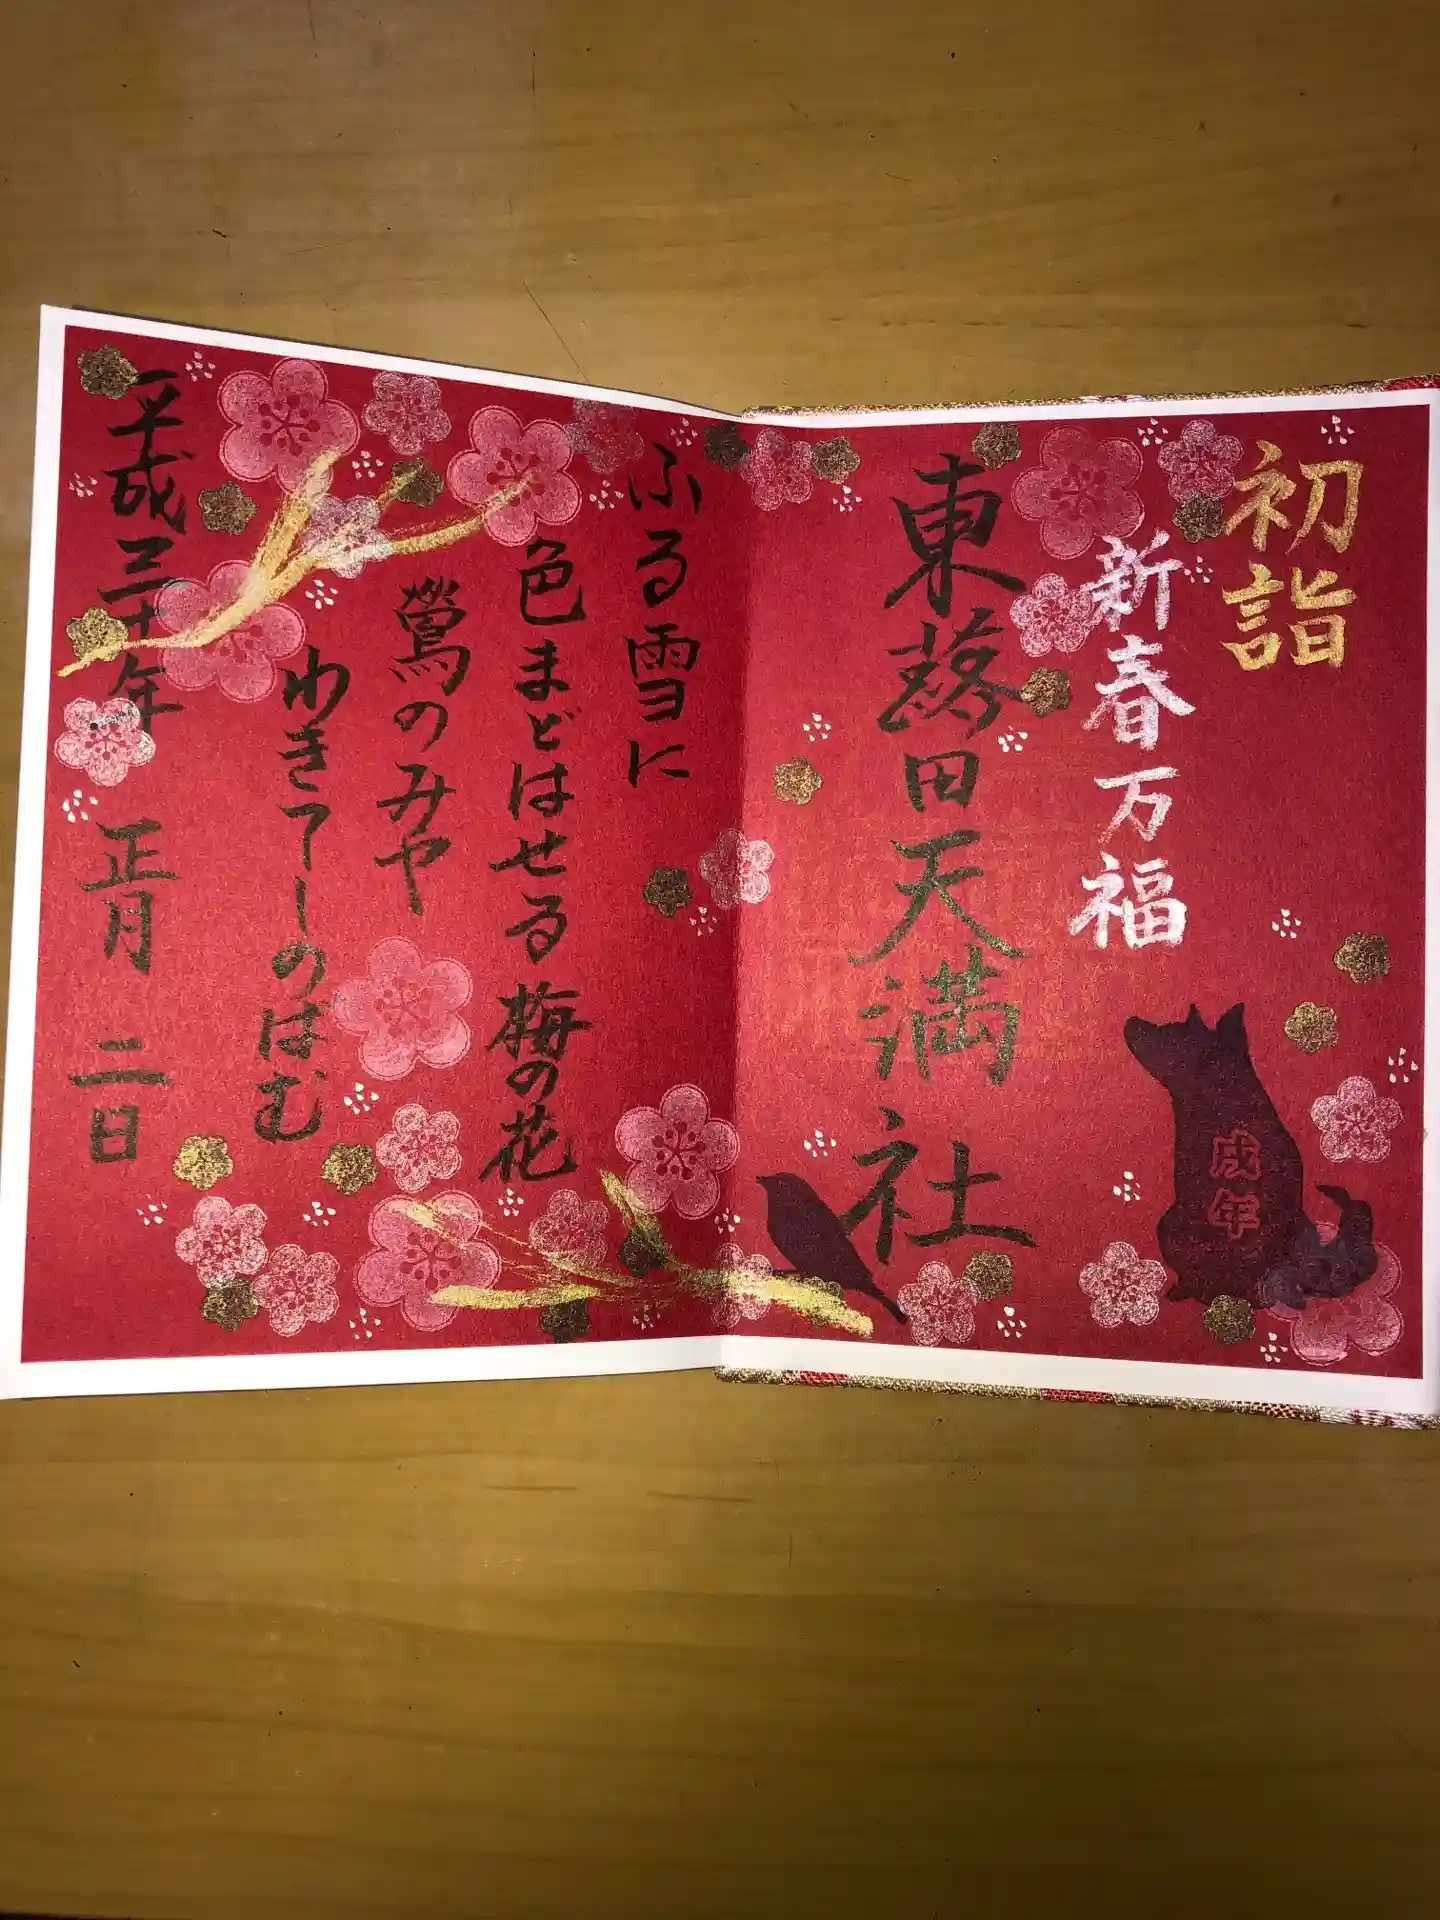 初詣
新春万福
東蕗田天満社
戌年
ふる雪に
色まどはせる梅の花
鶯のみや
わきてしのばむ
平成三十年 正月 二日